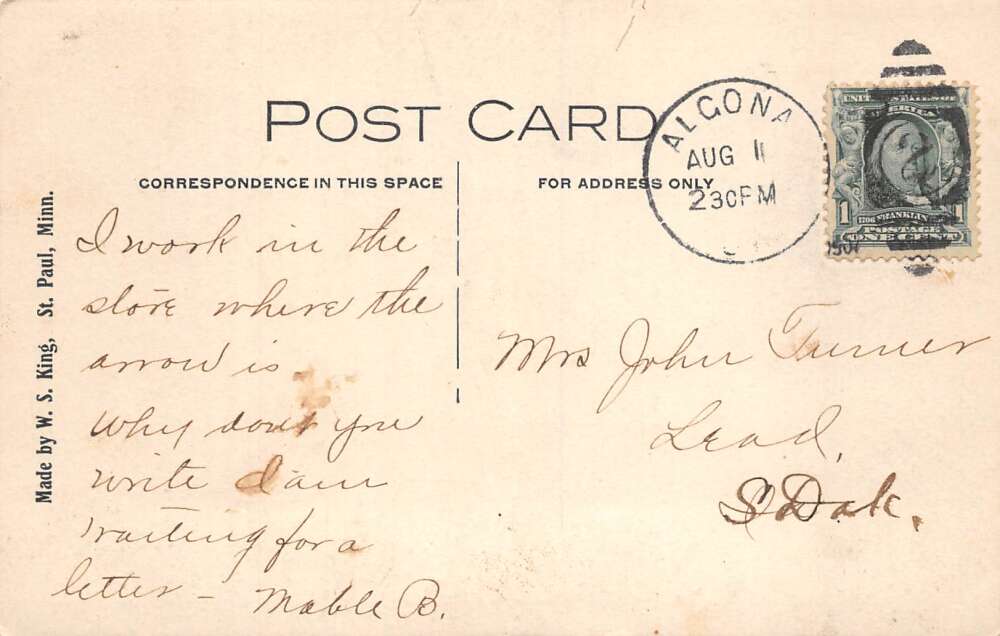 POST CARD
CORRESPONDENCE IN THIS SPACE
FOR ADDRESS ONLY
Made by W. S. King, St. Paul, Minn.
ALGONA
AUG 1
230PM
1907
UNITED STATES OF
AMERICA
1706 FRANKLIN
1 POSTAGE 1
ONE CENT
I work in the
store where the
arrow is
Why dont you
write I am
waiting for a
letter - Mable B.
Mrs John Turner
Lead,
S Dak.